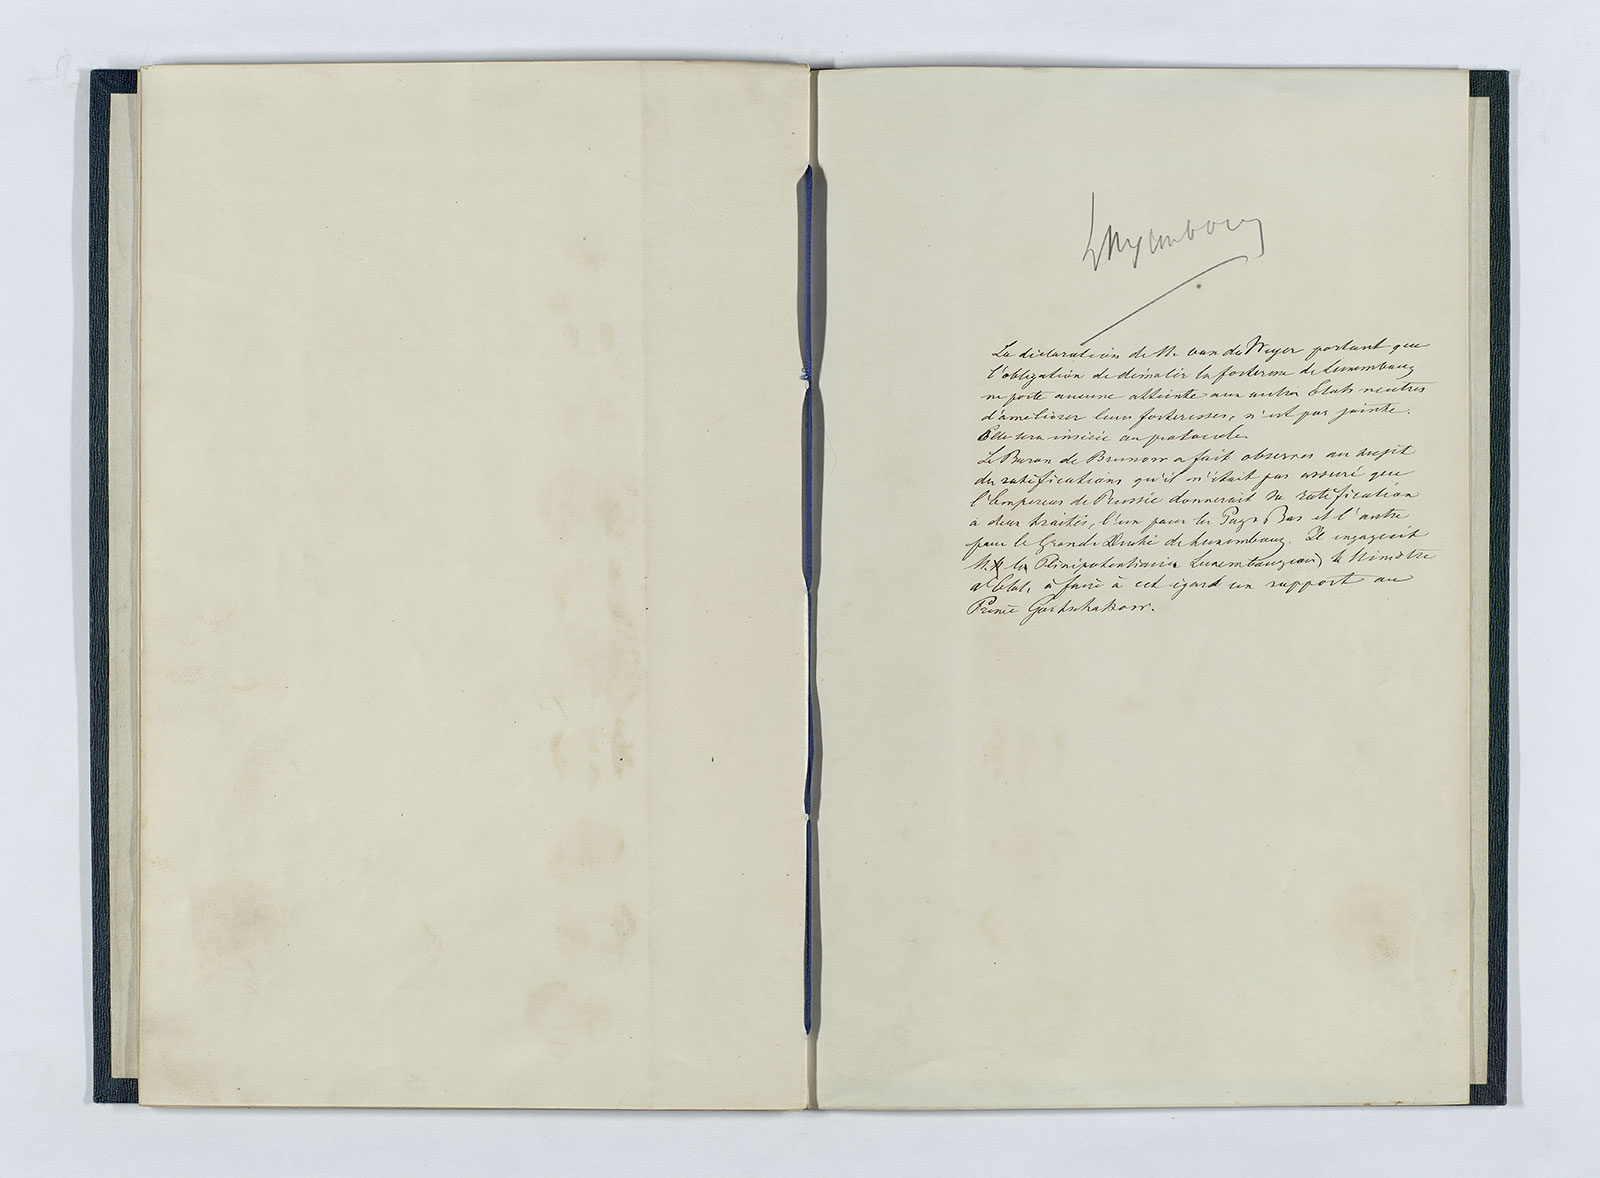 Luxembourg
La déclaration de M. van de Weyer portant que
l'obligation de démolir la forteresse de Luxembourg
ne porte aucune atteinte aux autres Etats neutres
d'améliorer leurs forteresses, n'est pas jointe.
Elle sera insérée au protocole.
Le Baron de Brunow a fait observer au sujet
des ratifications qu'il n'était pas assuré que
l'Empereur de Russie donnerait sa ratification
à deux traités, l'un pour les Pays Bas et l'autre
pour le Grand-Duché de Luxembourg. Il engageait
les Plénipotentiaires Luxembourgeois, le Ministre
d'Etat, à faire à cet égard un rapport au
Prince Gortschakow.